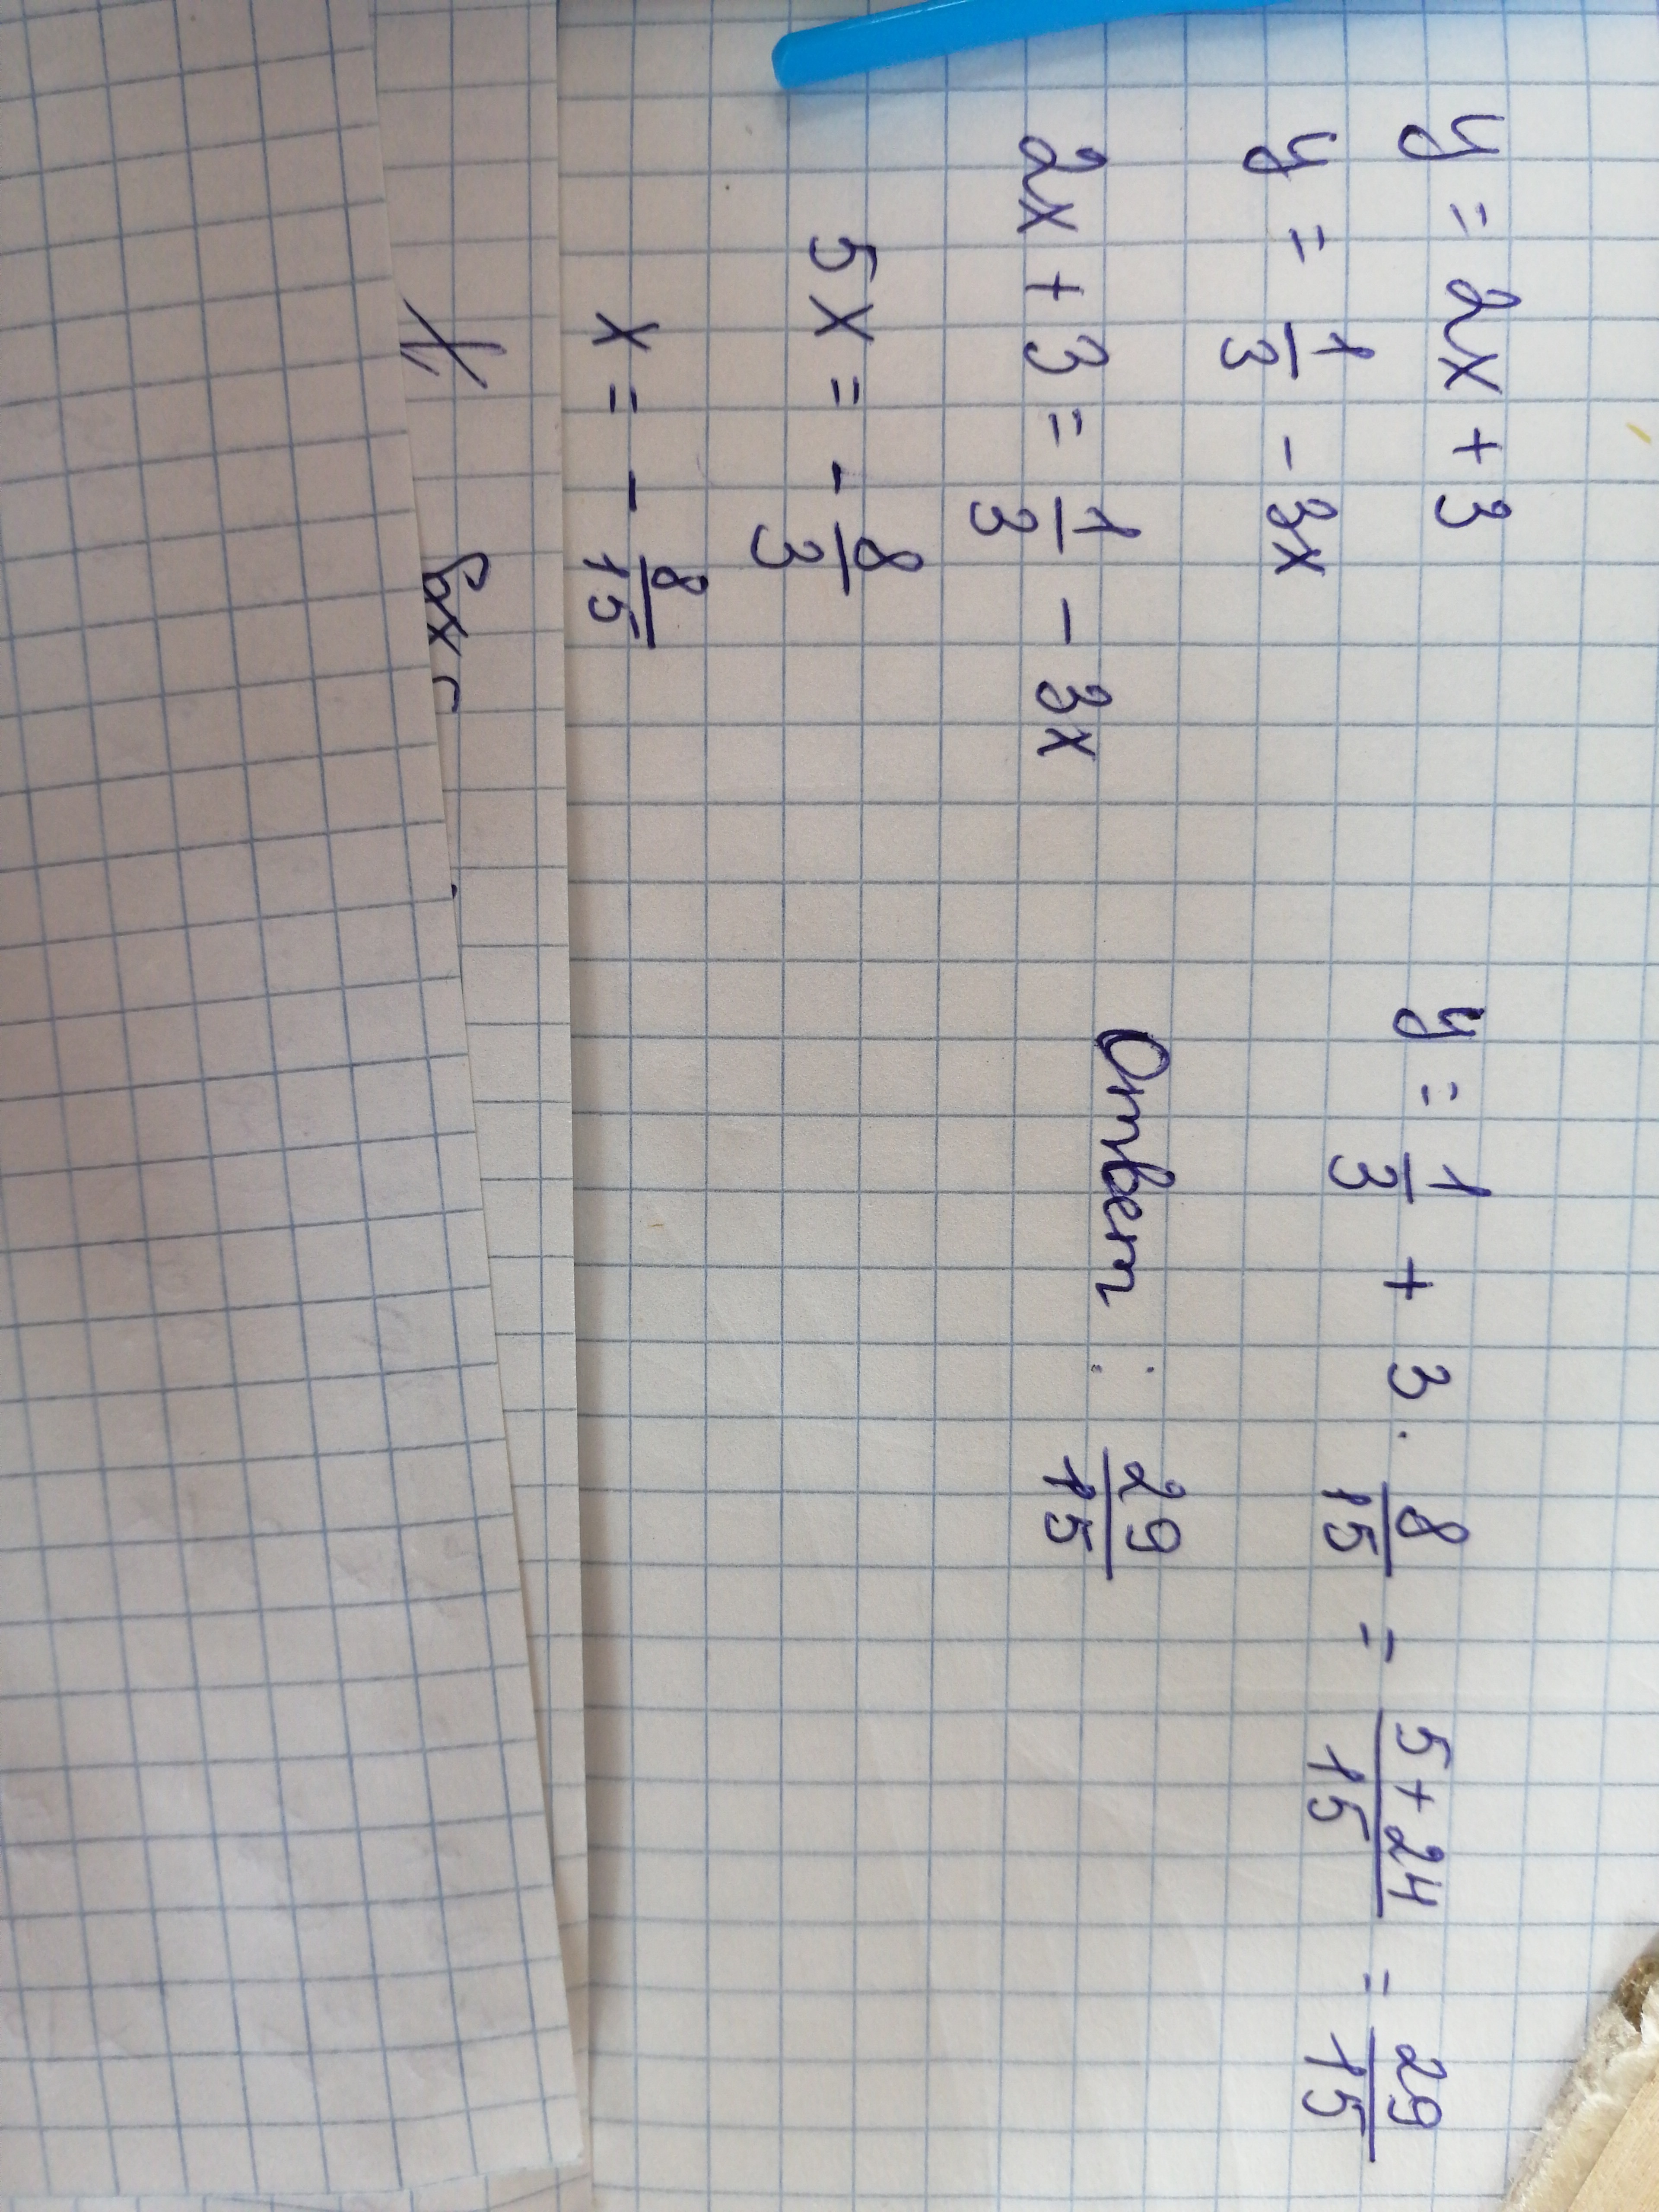 y = 2x + 3
y = 1/3 - 3x
2x + 3 = 1/3 - 3x
5x = - 8/3
x = - 8/15
y = 1/3 + 3 · 8/15 = (5 + 24)/15 = 29/15
Ответ : 29/15